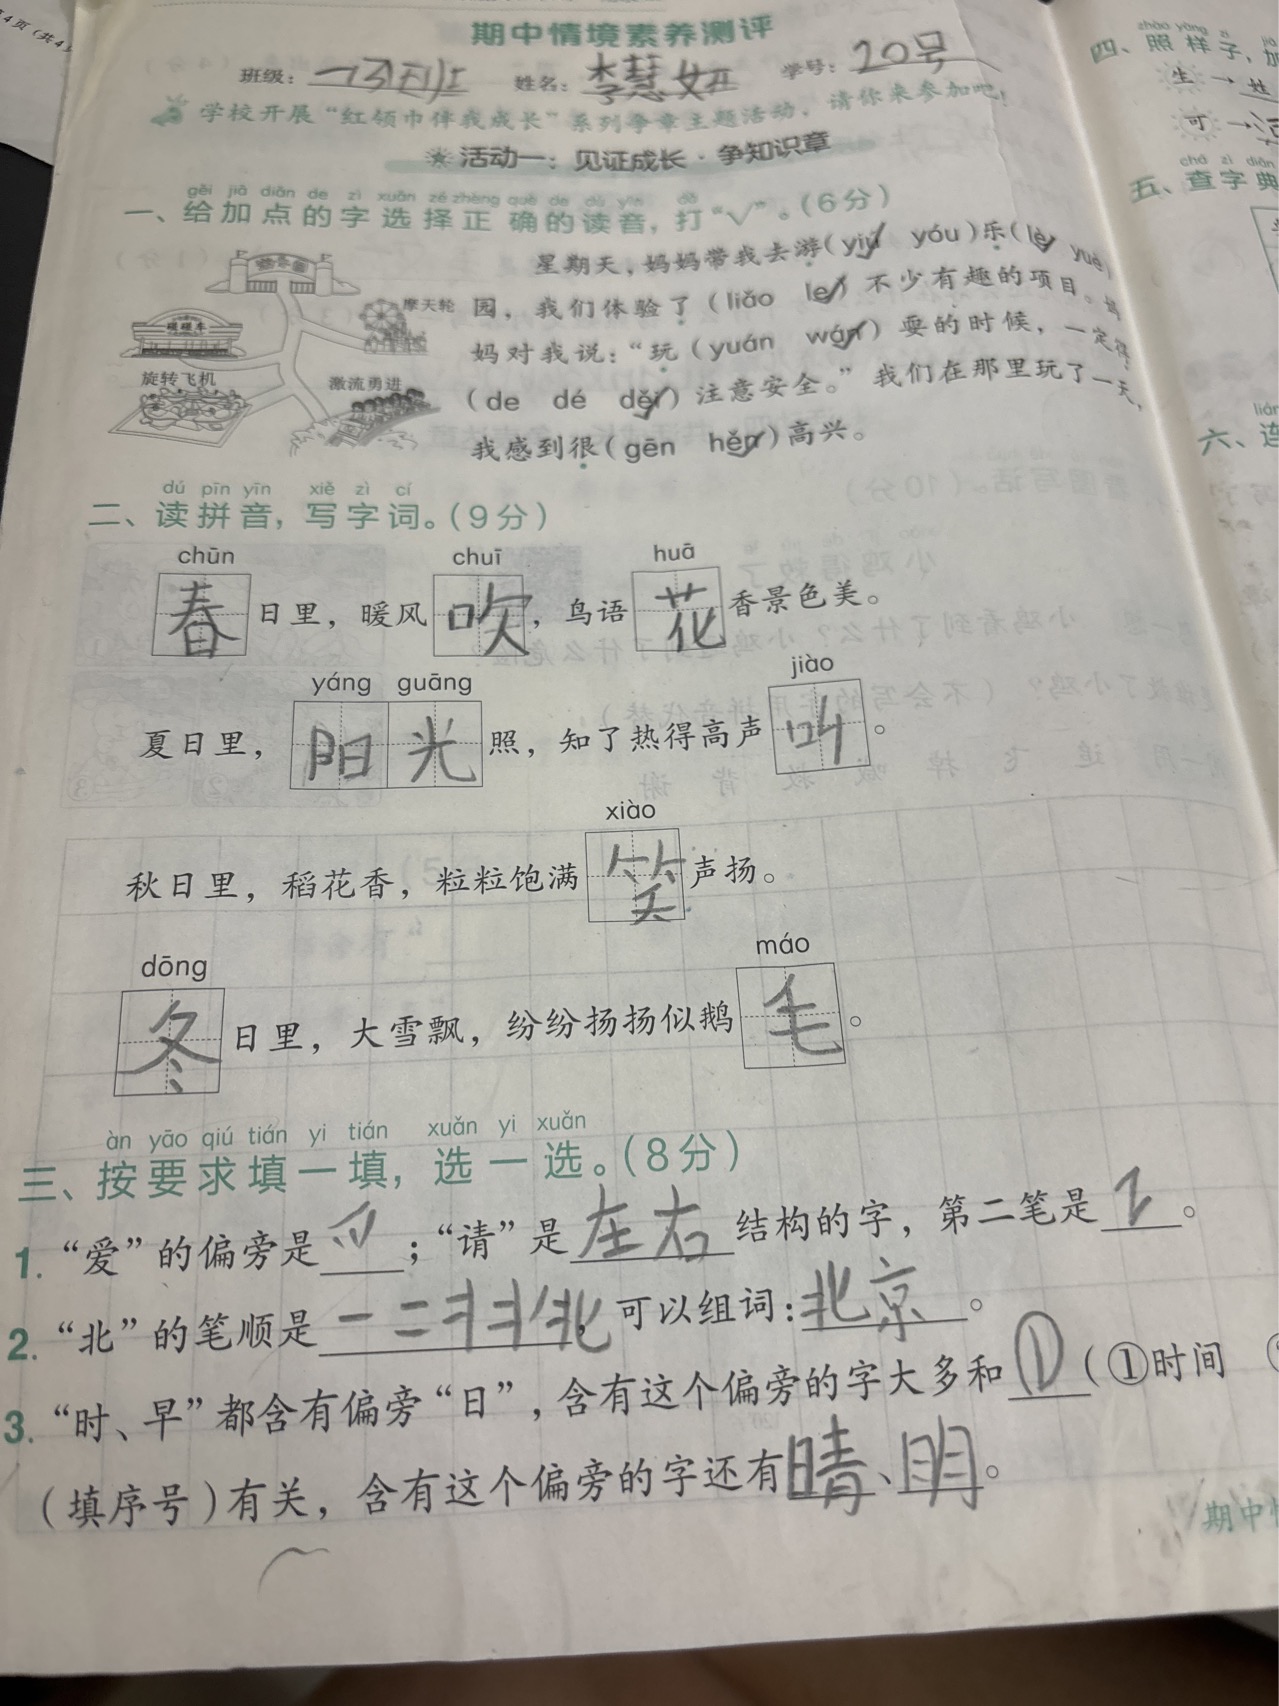 第4页（共4
期中情境素养测评
班级： 姓名：李慧妍 学号：20号
学校开展“红领巾伴我成长”系列争章主题活动，请你来参加吧！
活动一：见证成长·争知识章
gěi jiā diǎn de zì xuǎn zé zhèng què de dú yīn dǎ
一、给加点的字选择正确的读音，打“√”。（6分）
星期天，妈妈带我去游（yiú yóu）乐（lè yuè）
园，我们体验了（liǎo le）不少有趣的项目。妈
妈对我说：“玩（yuán wán）耍的时候，一定得
（de dé děi）注意安全。”我们在那里玩了一天，
我感到很（gēn hěn）高兴。
碰碰车
摩天轮
旋转飞机
激流勇进
dú pīn yīn xiě zì cí
二、读拼音，写字词。（9分）
chūn chuī huā
春日里，暖风吹，鸟语花香景色美。
yáng guāng jiào
夏日里，阳光照，知了热得高声叫。
xiào
秋日里，稻花香，粒粒饱满笑声扬。
dōng máo
冬日里，大雪飘，纷纷扬扬似鹅毛。
àn yāo qiú tián yi tián xuǎn yi xuǎn
三、按要求填一填，选一选。（8分）
1. “爱”的偏旁是爫；“请”是左右结构的字，第二笔是㇊。
2. “北”的笔顺是 可以组词：北京。
3. “时、早”都含有偏旁“日”，含有这个偏旁的字大多和①（①时间
（填序号）有关，含有这个偏旁的字还有晴、明。
zhào yàng zi
四、照样子，加
生→姓
可→河
chá zì diǎn
五、查字典
六、连
期中情